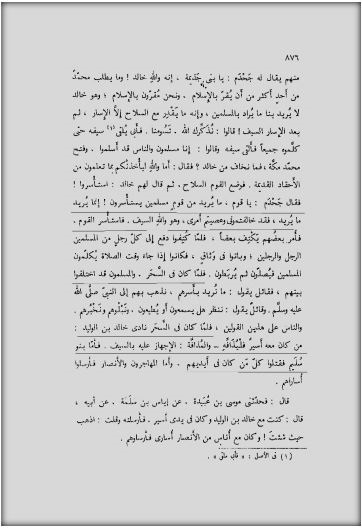 ٨٧٦
منهم يقال له جَحْدَم : يا بنى جَذيمة ، إنه والله خالد ! وما يطلب محمّدٌ
من أحدٍ أكثر من أن يُقرّ بالإسلام ، ونحن مُقرّون بالإسلام ؛ وهو خالد
لا يُريد بنا ما يُراد بالمسلمين ، وإنه ما يَقْدِر مع السلاح إلّا الإسار ، ثم
بعد الإسار السيف ! قالوا : نُذَكّرك الله ، تَسُومنا . فأبى يُلقى (١) سيفه حتى
كلّموه جميعاً فألقى سيفه وقالوا : إنا مسلمون والناس قد أسلموا ، وفتح
محمّد مكّة ، فما نخاف من خالد ؟ فقال : أما والله ليأخذنّكم بما تعلمون من
الأحقاد القديمة . فوضع القوم السلاح ، ثم قال لهم خالد : استأسروا !
فقال جَحْدَم : يا قوم ، ما يُريد من قوم مسلمين يستأسرون ! إنما يُريد
ما يُريد ، فقد خالفتمونى وعصيتم أمرى ، وهو والله السيف . فاستأسر القوم ،
فأمر بعضُهم يكتف بعضاً ، فلمّا كُتِفوا دفع إلى كلّ رجلٍ من المسلمين
الرجل والرجلين ؛ وباتوا فى وَثاقٍ ، فكانوا إذا جاء وقت الصلاة يُكلّمون
المسلمين فيُصلّون ثم يُربَطون . فلمّا كان فى السَّحَر ، والمسلمون قد اختلفوا
بينهم ، فقائل يقول : ما نُريد بأسرهم ، نذهب بهم إلى النبىّ صلّى الله
عليه وسلّم . وقائل يقول : ننظر هل يسمعون أو يُطيعون ، ونَبْلُوهم ونَخْبُرهم .
والناس على هذين القولين ، فلمّا كان فى السَّحَر نادى خالد بن الوليد :
من كان معه أسيرٌ فليُذافِّه — والمُذافَّة : الإجهاز عليه بالسيف . فأمّا بنو
سُلَيم فقتلوا كلّ من كان فى أيديهم ، وأما المهاجرون والأنصار فأرسلوا
أساراهم .
قال : فحدّثنى موسى بن عُبَيدة ، عن إياس بن سَلَمة ، عن أبيه ،
قال : كنت مع خالد بن الوليد وكان فى يدى أسير ، فأرسلته وقلت : اذهب
حيث شئتَ ! وكان مع أُناسٍ من الأنصار أُسارى فأرسلوهم .
(١) فى الأصل :